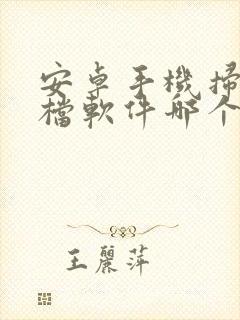 安卓手機掃
檔軟件哪个
王麗萍